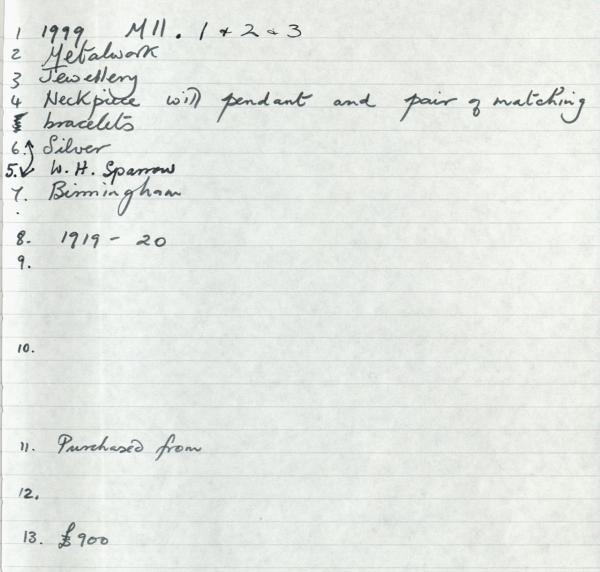 1 1999 M11. 1 + 2 + 3
2 Metalwork
3 Jewellery
4 Neckpiece with pendant and pair of matching
bracelets
6. Silver
5. W. H. Sparrow
7. Birmingham
8. 1919 - 20
9.
10.
11. Purchased from
12.
13. £900